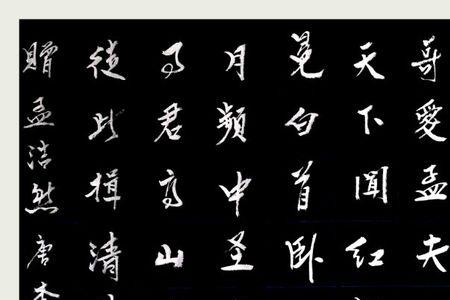 哥愛孟夫
天下聞紅
冕白首卧
月頻中圣
事君高山
徒此揖清
贈孟浩然唐李